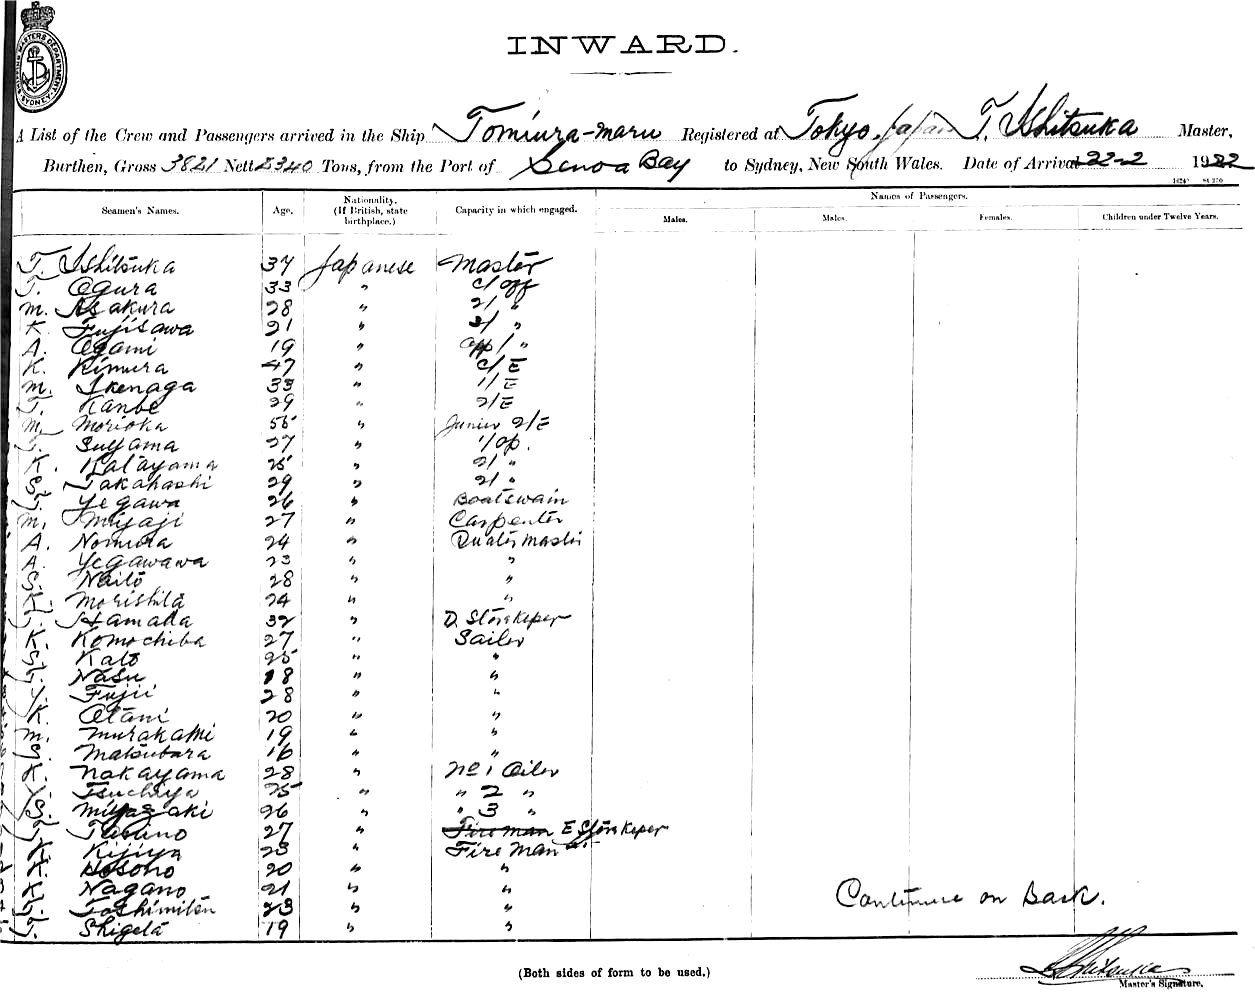 SHIPPING MASTERS DEPARTMENT SYDNEY
INWARD.
A List of the Crew and Passengers arrived in the Ship Tomiura-maru Registered at Tokyo, Japan T. Ishitsuka Master,
Burthen, Gross 3821 Nett 2340 Tons, from the Port of Bay to Sydney, New South Wales. Date of Arrival 22-2 1922
Seamen's Names. Age. Nationality. (If British, state birthplace.) Capacity in which engaged. Names of Passengers.
Males. Males. Females. Children under Twelve Years.
T. Ishitsuka 37 Japanese Master
T. Ogura 33 " c/off
M. Asakura 28 " 2/ "
K. Fujisawa 21 " 3/ "
A. Ogami 19 " app/ "
K. Kimura 47 " C/E
M. Ikenaga 33 " 1/E
T. Kanbe 29 " 2/E
M. Morioka 55 " Junior 2/E
T. Suyama 27 " 1/op.
K. Katayama 25 " 2/ "
S. Takahashi 29 " 2/ "
T. Yegawa 26 " Boatswain
M. Miyaji 27 " Carpenter
A. Nomura 24 " Quater Master
A. Yegawawa 23 " "
S. Naito 28 " "
K. Morishita 24 " "
T. Hamada 32 " D. Storekeper
K. Komochiba 27 " Sailer
S. Kato 25 " "
T. Nasu 18 " "
Y. Fujii 28 " "
K. Otani 20 " "
M. Murakami 19 " "
S. Matsubara 16 " "
K. Nakayama 28 " No 1 Oiler
Y. Tsuchiya 25 " " 2 "
S. Miyazaki 26 " " 3 "
T. 27 " Fireman E Storekeper
K. Kijiya 23 " Fireman
K. Hosono 20 " "
K. Nagano 21 " "
T. Toshimiten 23 " "
T. Shigeta 19 " "
Continue on Back.
(Both sides of form to be used.)
T. Ishitsuka
Master's Signature.